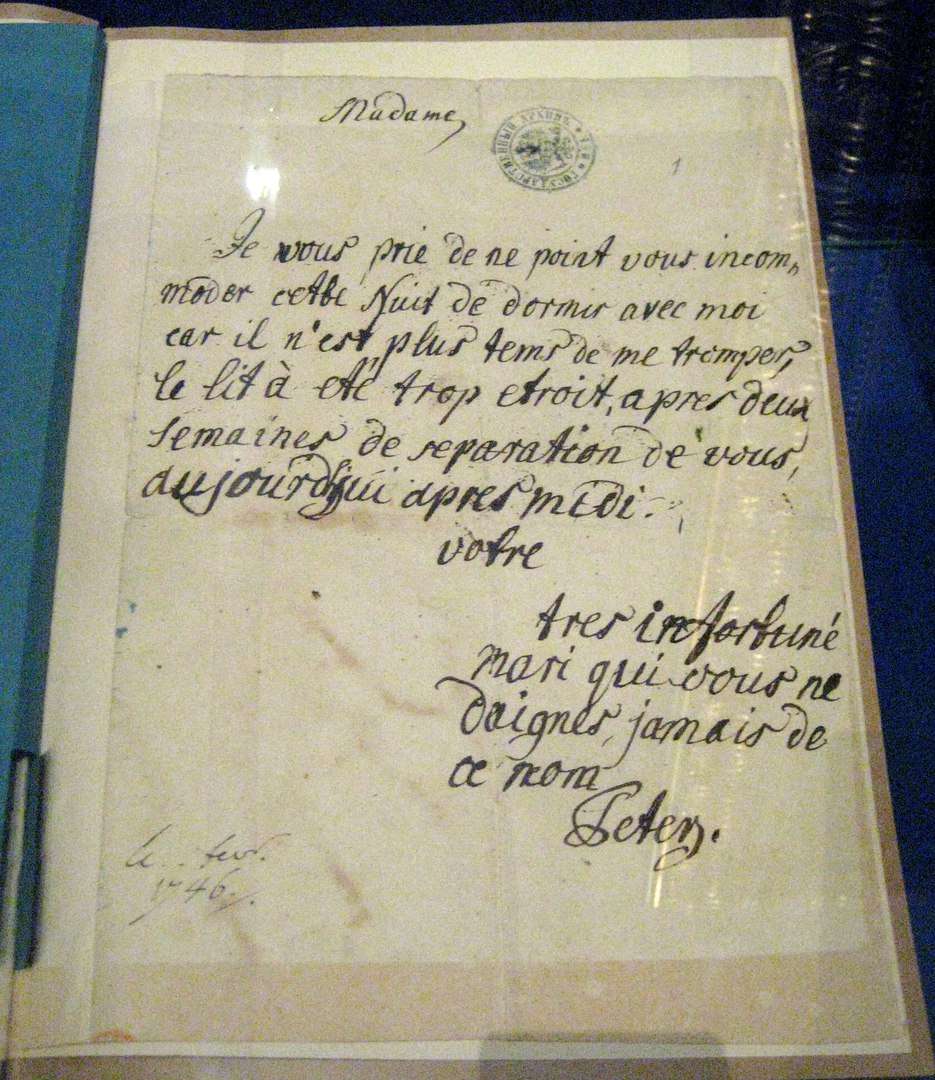 Madame,
ГОСУДАРСТВЕННЫЙ АРХИВЪ
1
Je vous prie de ne point vous incom,
moder cette Nuit de dormir avec moi
car il n'est plus tems de me tromper,
le lit à eté trop etroit, apres deux
semaines de separation de vous,
aujourd'hui apres midi.
votre
tres infortuné
mari qui vous ne
daignes jamais de
ce nom
Peter.
le
1746.